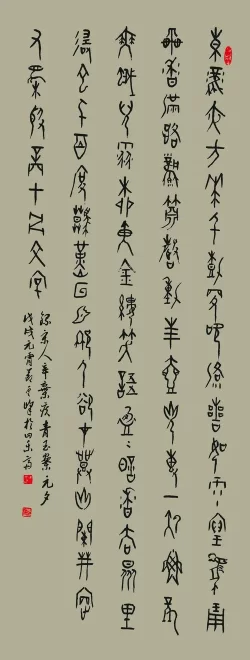 東風夜放花千樹更吹落星如雨寶馬雕
車香滿路鳳簫聲動玉壺光轉一夜魚龍
舞蛾兒雪柳黃金縷笑語盈盈暗香去眾里
尋他千百度驀然回首那人卻在燈火闌珊處
文字
宋人辛棄疾青玉案元夕
戊戌元宵